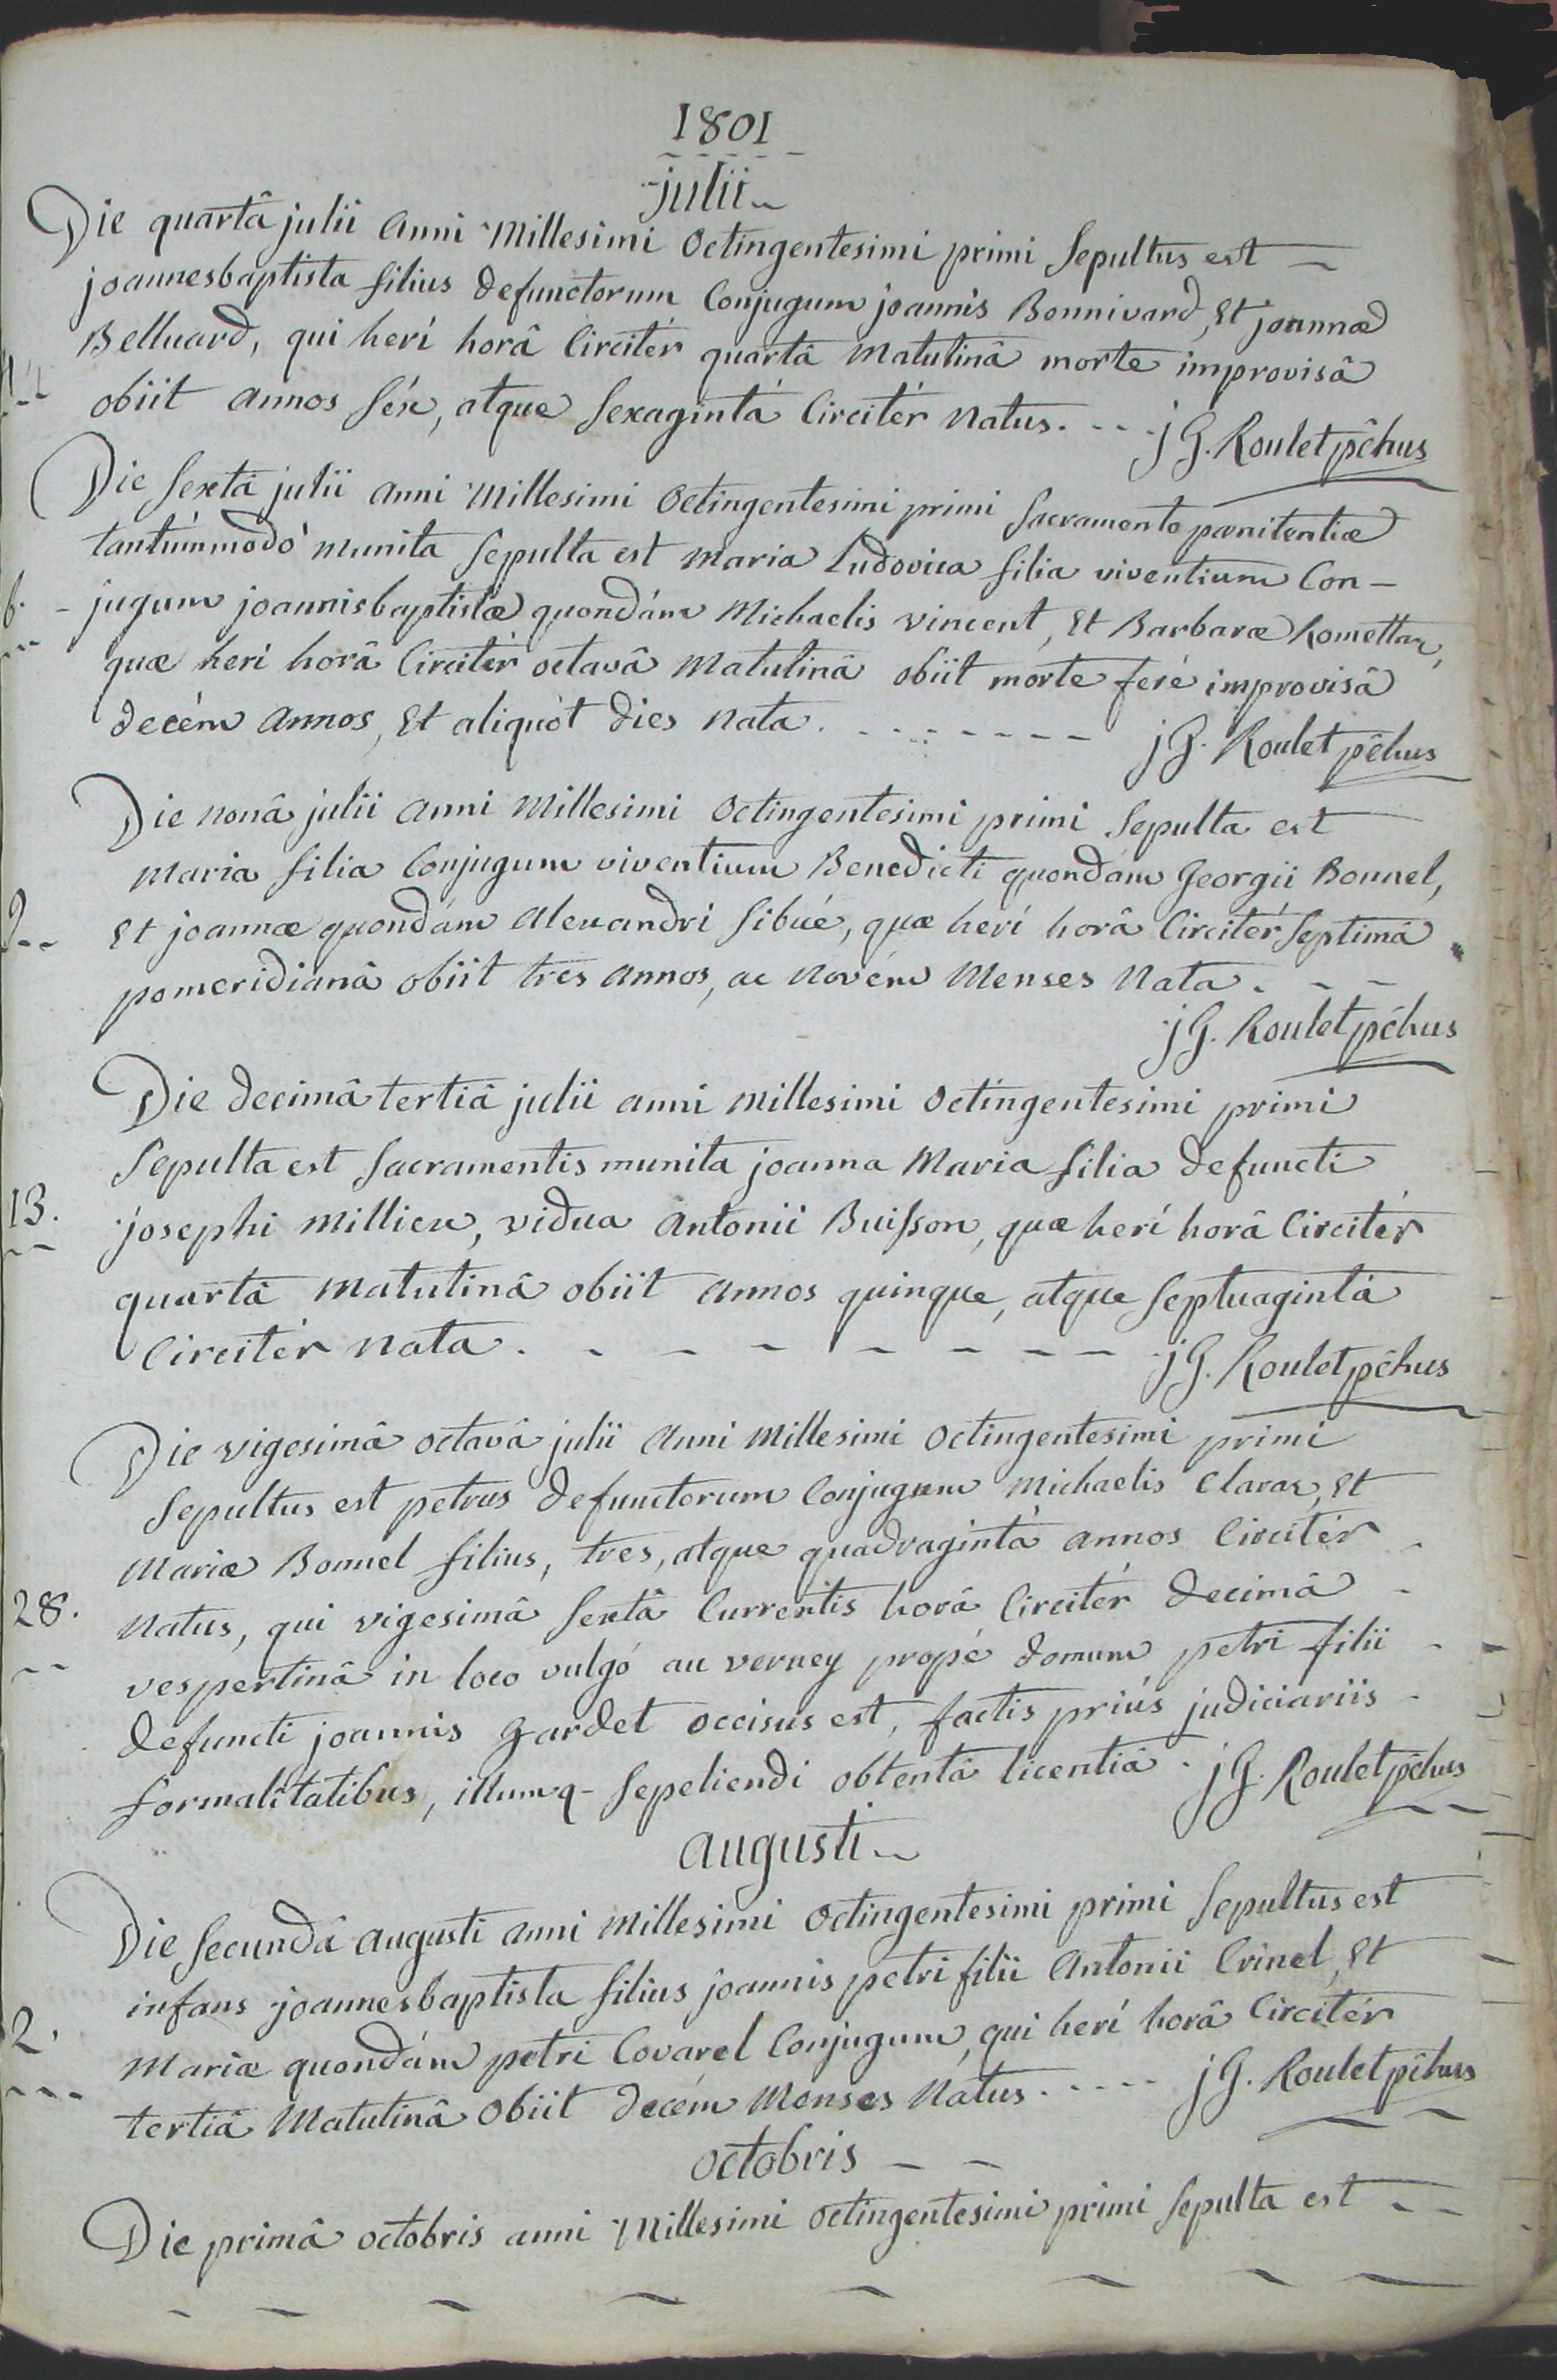 1801
julii
Die quartâ julii anni Millesimi Octingentesimi primi Sepultus est
joannesbaptista filius defunctorum Conjugum joannis Bonnivard, Et joannæ
Belluard, qui herí horâ Circitér quartâ Matutinâ morte improvisâ
obiit annos séx, atque sexagintá Circitér Natus. - - - jG. Roulet pêhus
Die Sextâ julii anni Millesimi Octingentesimi primi Sacramento pœnitentiæ
6. tantúmmodò munita Sepulta est Maria Ludovica filia viventium Con-
jugum joannisbaptistæ quondám Michaelis vincent, Et Barbaræ Romettaz,
quæ herí horâ Circitér octavâ Matutinâ obiit morte feré improvisâ
decém annos, Et aliquòt dies Nata. - - - - - - - jG. Roulet pêhus
Die Nonâ julii anni Millesimi Octingentesimi primi Sepulta est
Maria filia Conjugum viventium Benedicti quondám Georgii Bonnel,
9 - - Et joannæ quondám alexandri Sibué, quæ herí horâ Circitér Septimâ
pomeridianâ obiit tres annos, ac Novém Menses Nata. - -
jG. Roulet pêhus
Die decimâ tertiâ julii anni Millesimi Octingentesimi primi
Sepulta est Sacramentis munita joanna Maria filia defuncti
13. josephi Milliex, vidua Antonii Buisson, quæ herí horâ Circitér
quartâ Matutinâ obiit annos quinque, atque Septuagintá
Circitér Nata. - - - - - - - - jG. Roulet pêhus
Die vigesimâ octavâ julii anni Millesimi Octingentesimi primi
Sepultus est petrus defunctorum Conjugum Michaelis Claraz, Et
Mariæ Bonnel filius, tres, atque quadragintá annos Circitér
28. Natus, qui vigesimâ Sextâ Currentis horâ Circitér decimâ
vespertinâ in loco vulgó au verney propé domum petri filii
defuncti joannis Gardet occisus est, factis priús judiciariis
formalitatibus, illumq- Sepeliendi obtentâ licentiâ. jG. Roulet pêhus
augusti
Die Secundâ augusti anni Millesimi Octingentesimi primi Sepultus est
infans joannesbaptista filius joannis petri filii Antonii Crinel, Et
2. Mariæ quondám petri Covarel Conjugum, qui herí horâ Circitér
tertiâ Matutinâ obiit decém Menses Natus. - - - - - jG. Roulet pêhus
octobris - -
Die primâ octobris anni Millesimi Octingentesimi primi Sepulta est - -